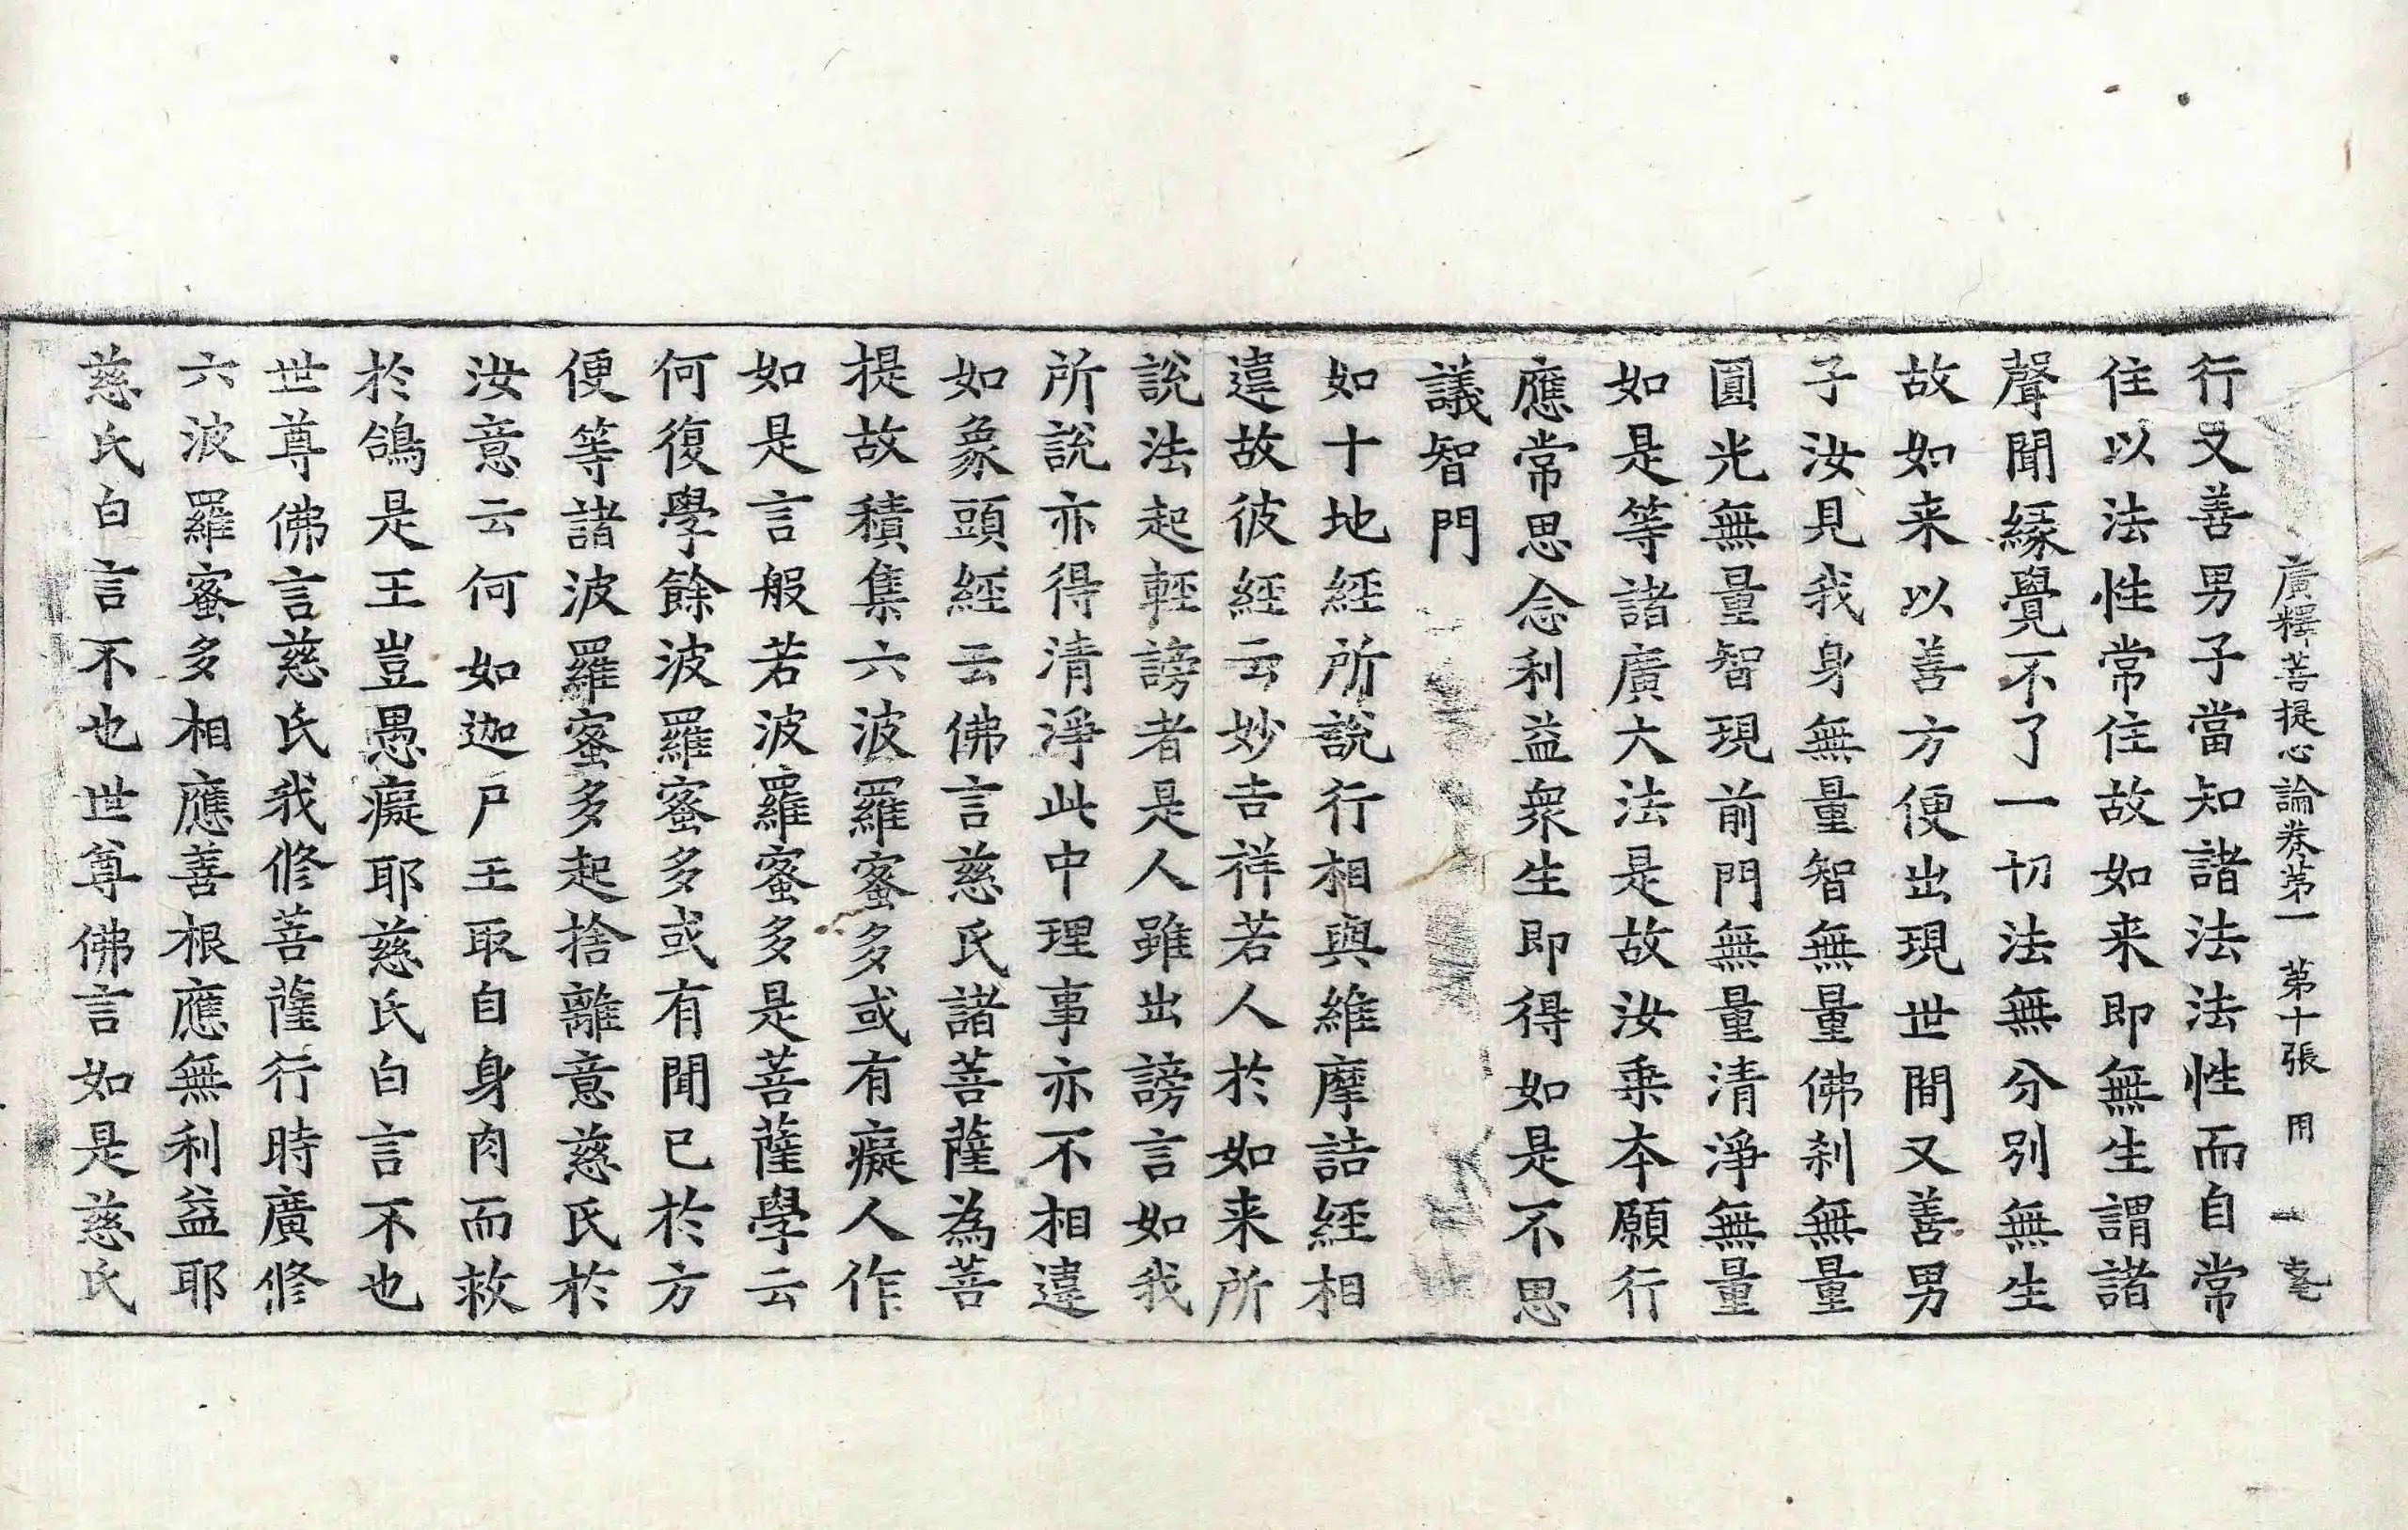 廣釋菩提心論卷第一 第十張 用
行又善男子當知諸法法性而自常
住以法性常住故如来即無生謂諸
聲聞緣覺不了一切法無分別無生
故如来以善方便出現世間又善男
子汝見我身無量智無量佛刹無量
圓光無量智現前門無量清淨無量
如是等諸廣大法是故汝乘本願行
應常思念利益衆生即得如是不思
議智門
如十地經所說行相與維摩詰經相
違故彼經云妙吉祥若人於如来所
說法起輕謗者是人雖出謗言如我
所說亦得清淨此中理事亦不相違
如象頭經云佛言慈氏諸菩薩為菩
提故積集六波羅蜜多或有癡人作
如是言般若波羅蜜多是菩薩學云
何復學餘波羅蜜多或有聞已於方
便等諸波羅蜜多起捨離意慈氏於
汝意云何如迦尸王取自身肉而救
於鴿是王豈愚癡耶慈氏白言不也
世尊佛言慈氏我修菩薩行時廣修
六波羅蜜多相應善根應無利益耶
慈氏白言不也世尊佛言如是慈氏